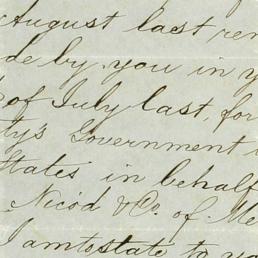 August last ren
de by you in y
of July last, for
ty's Government
States in behalf
Nicod & Co. of Me
I am to state to yo